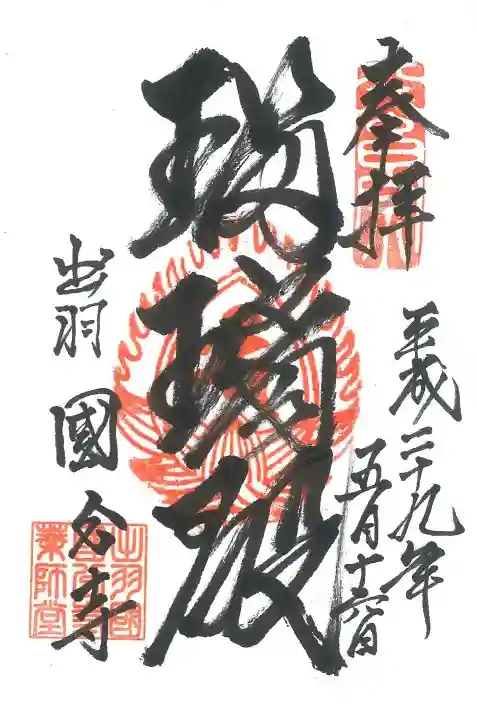 奉拝
平成二十九年
五月十六日
瑠璃殿
出羽
國分寺
出羽國
薬師堂